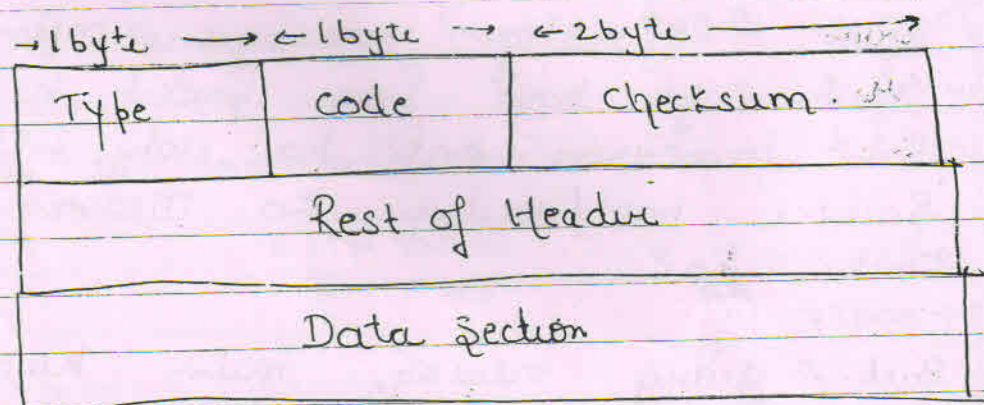 1 byte 1 byte 2 byte
Type code checksum.
Rest of Header
Data Section